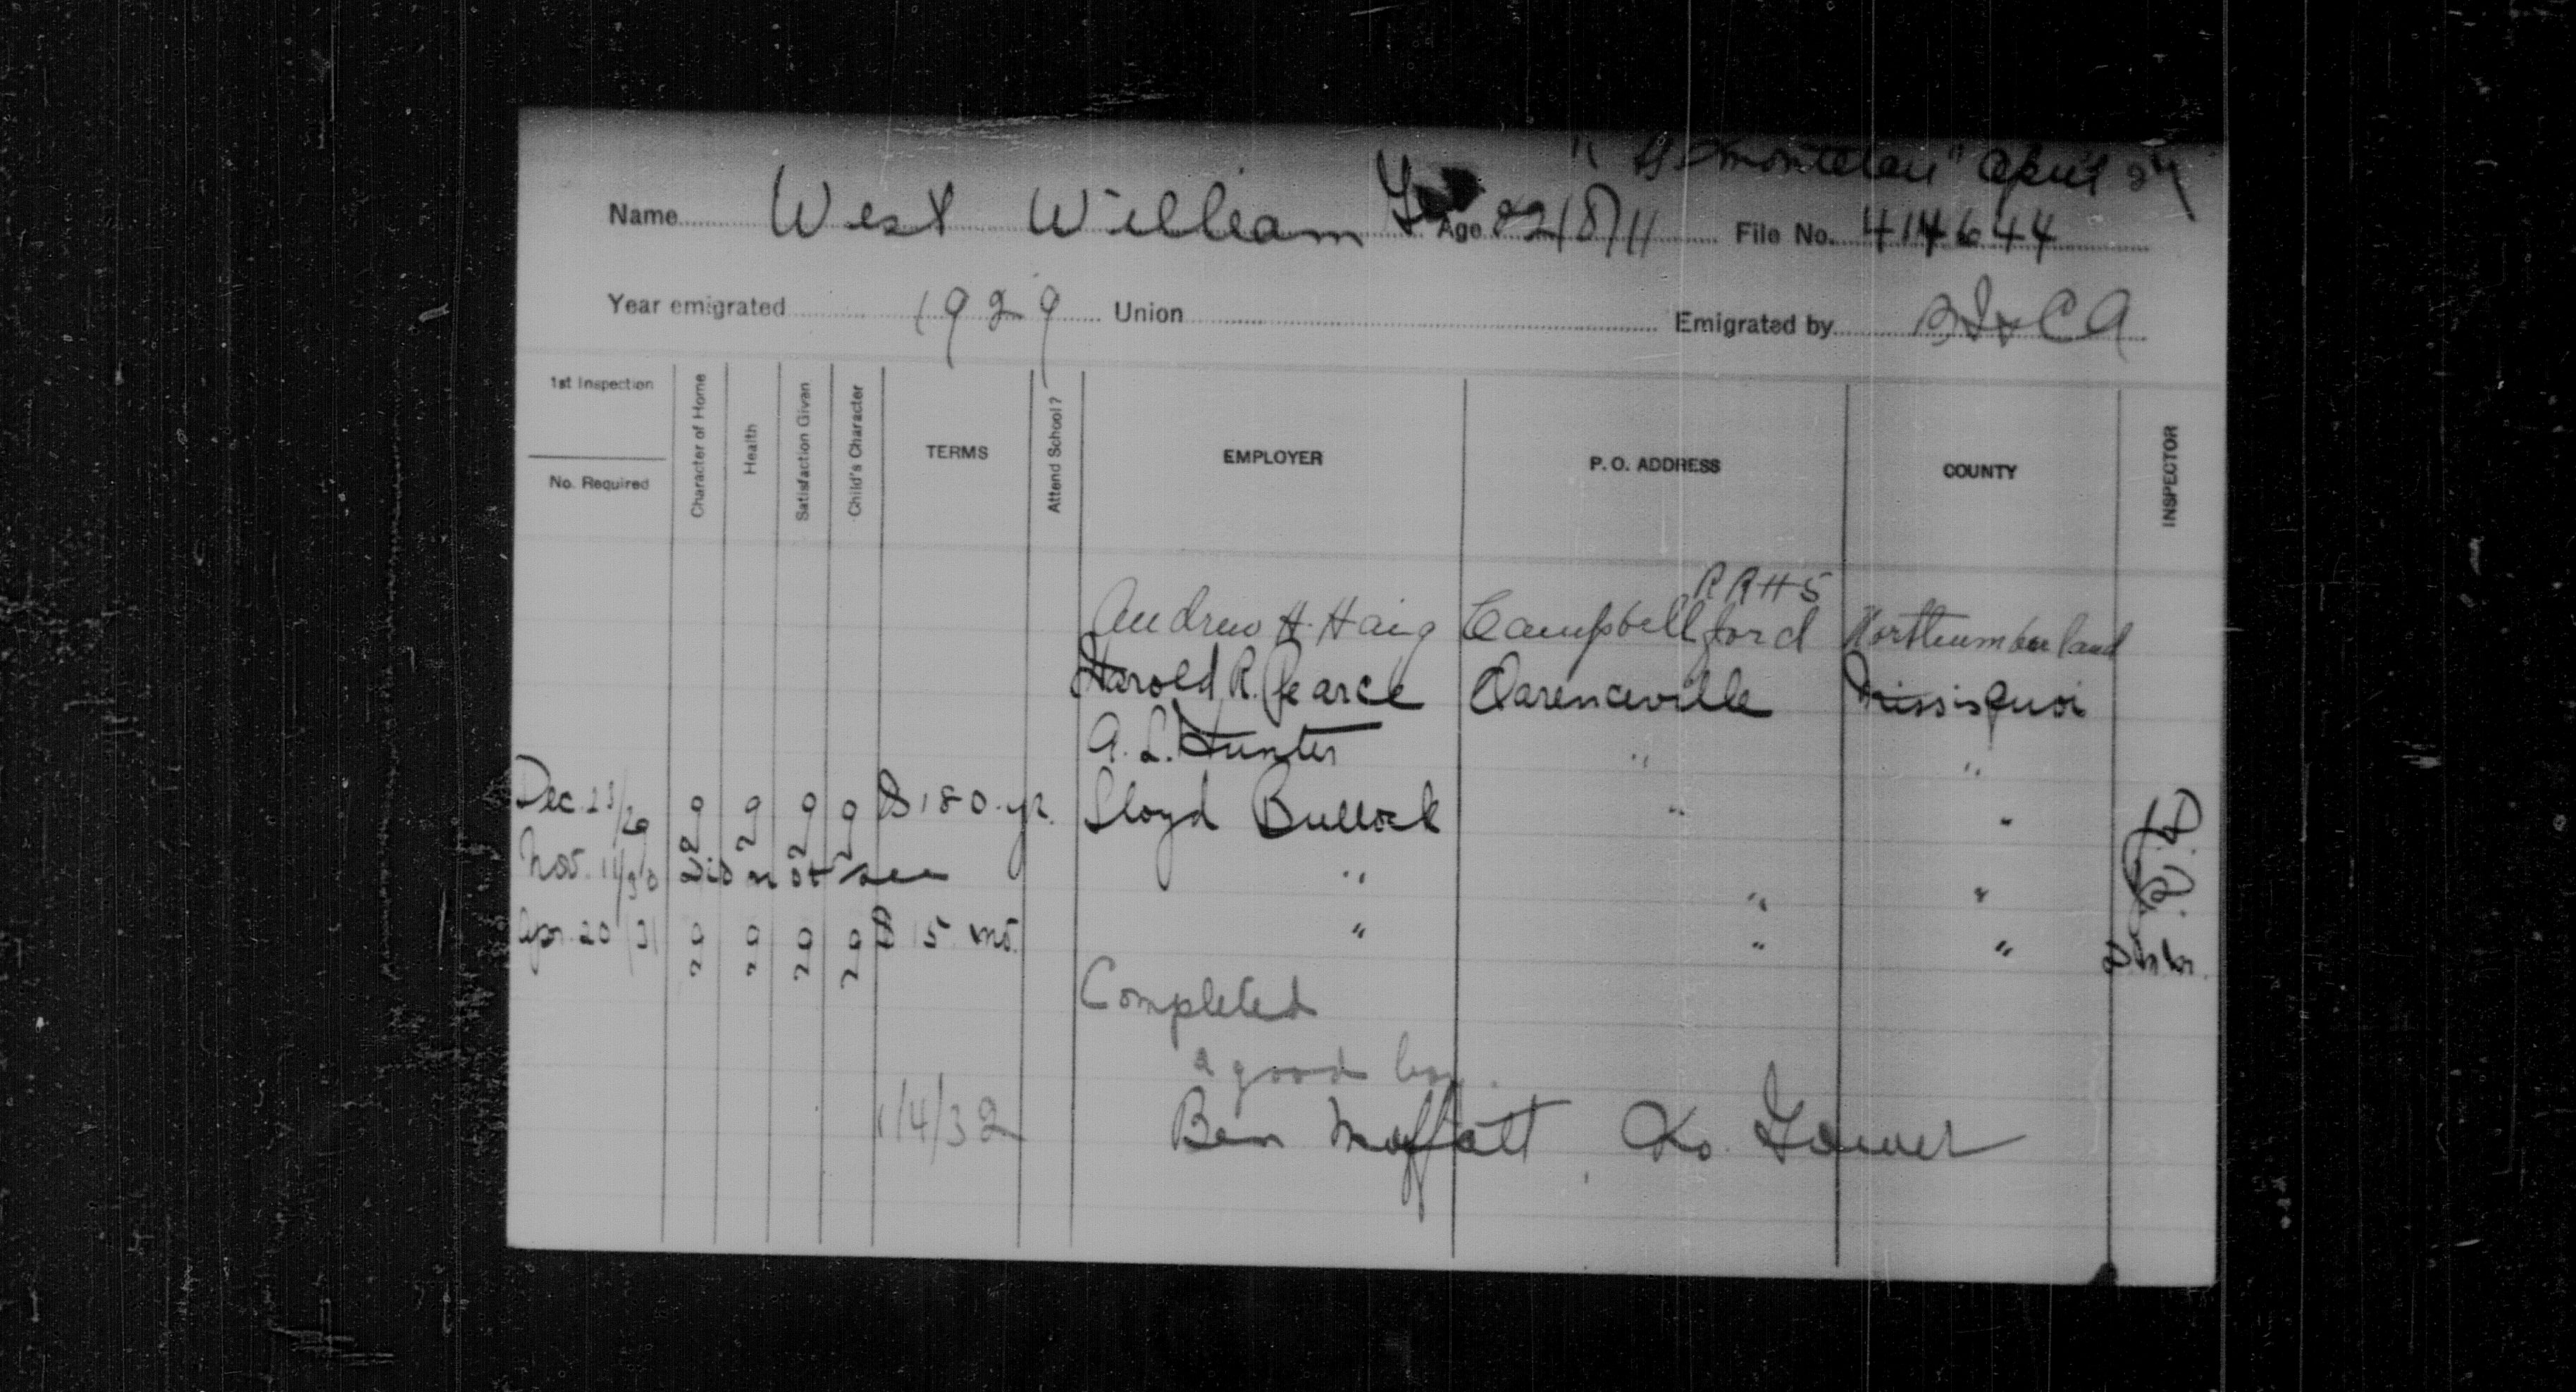 "SS Montclare" April
Name West William Age 22/8/11 File No. 414644
Year emigrated 1929 Union Emigrated by
1st Inspection
No. Required
Character of Home
Health
Satisfaction Given
Child's Character
TERMS
Attend School?
EMPLOYER
P. O. ADDRESS
COUNTY
INSPECTOR
RR#5
Andrew H. Haig Campbellford Northumberland
Harold R. Pearce Clarenceville Missisquoi
A. L. Hunter " "
Dec. 23/29 g g g g $180. yr. Lloyd Bullock " "
Nov. 11/30 Did not see " " "
Apr. 20/31 g g g g $15 mo. " " "
Completed
a good boy.
1/4/32 Ben Moffatt,